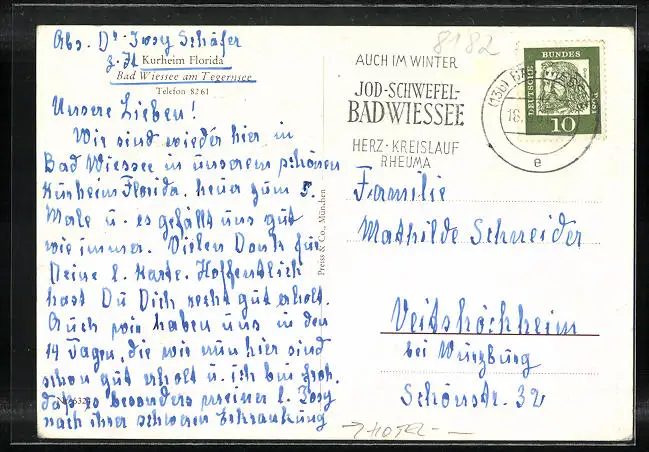 Abs. Dr. Josy Schäfer
z. Zt. Kurheim Florida
Bad Wiessee am Tegernsee
Telefon 8261
Unsere Lieben!
Wir sind wieder hier in
Bad Wiessee in unserem schönen
Kurheim Florida, heuer zum 5.
Male u. es gefällt uns gut
wie immer. Vielen Dank für
Deine l. Karte. Hoffentlich
hast Du Dich recht gut erholt.
Auch wir haben uns in den
14 Tagen, die wir nun hier sind
schon gut erholt u. ich bin froh,
dass es besonders meiner l. Josy
nach ihrer schweren Erkrankung
Preiss & Co., München
8182
AUCH IM WINTER
JOD-SCHWEFEL-
BAD WIESSEE
HERZ·KREISLAUF
RHEUMA
(13b) BAD WIESSEE
18.
e
DEUTSCHE BUNDESPOST
10
Familie
Mathilde Schneider
Veitshöchheim
bei Würzburg
Schönstr. 32
→HOTEL-